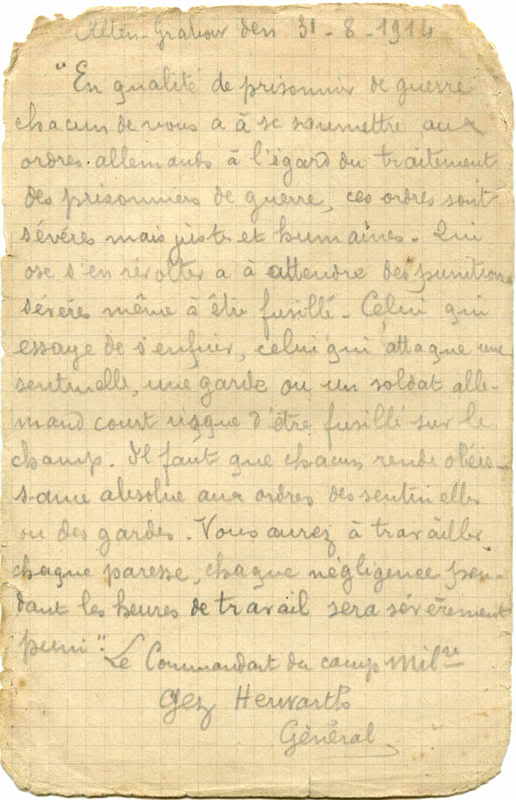 Alten-Grabow den 31-8-1914
"En qualité de prisonnier de guerre
chacun de vous a à se soumettre aux
ordres allemands à l'égard du traitement
des prisonniers de guerre, ces ordres sont
sévéres mais justes et humaines. Qui
ose s'en révolter a à attendre des punitions
sévéres même à être fusillé. Celui qui
essaye de s'enfuir, celui qui attaque une
sentinelle, une garde ou un soldat alle-
mand court risque d'être fusillé sur le
champ. Il faut que chacun rende obéis-
sance absolue aux ordres des sentinelles
ou des gardes. Vous aurez à travailler
chaque paresse, chaque négligence pen-
dant les heures de travail sera sévèrement
puni".
Le Commandant du camp Milre
Gez Herwarth
Général